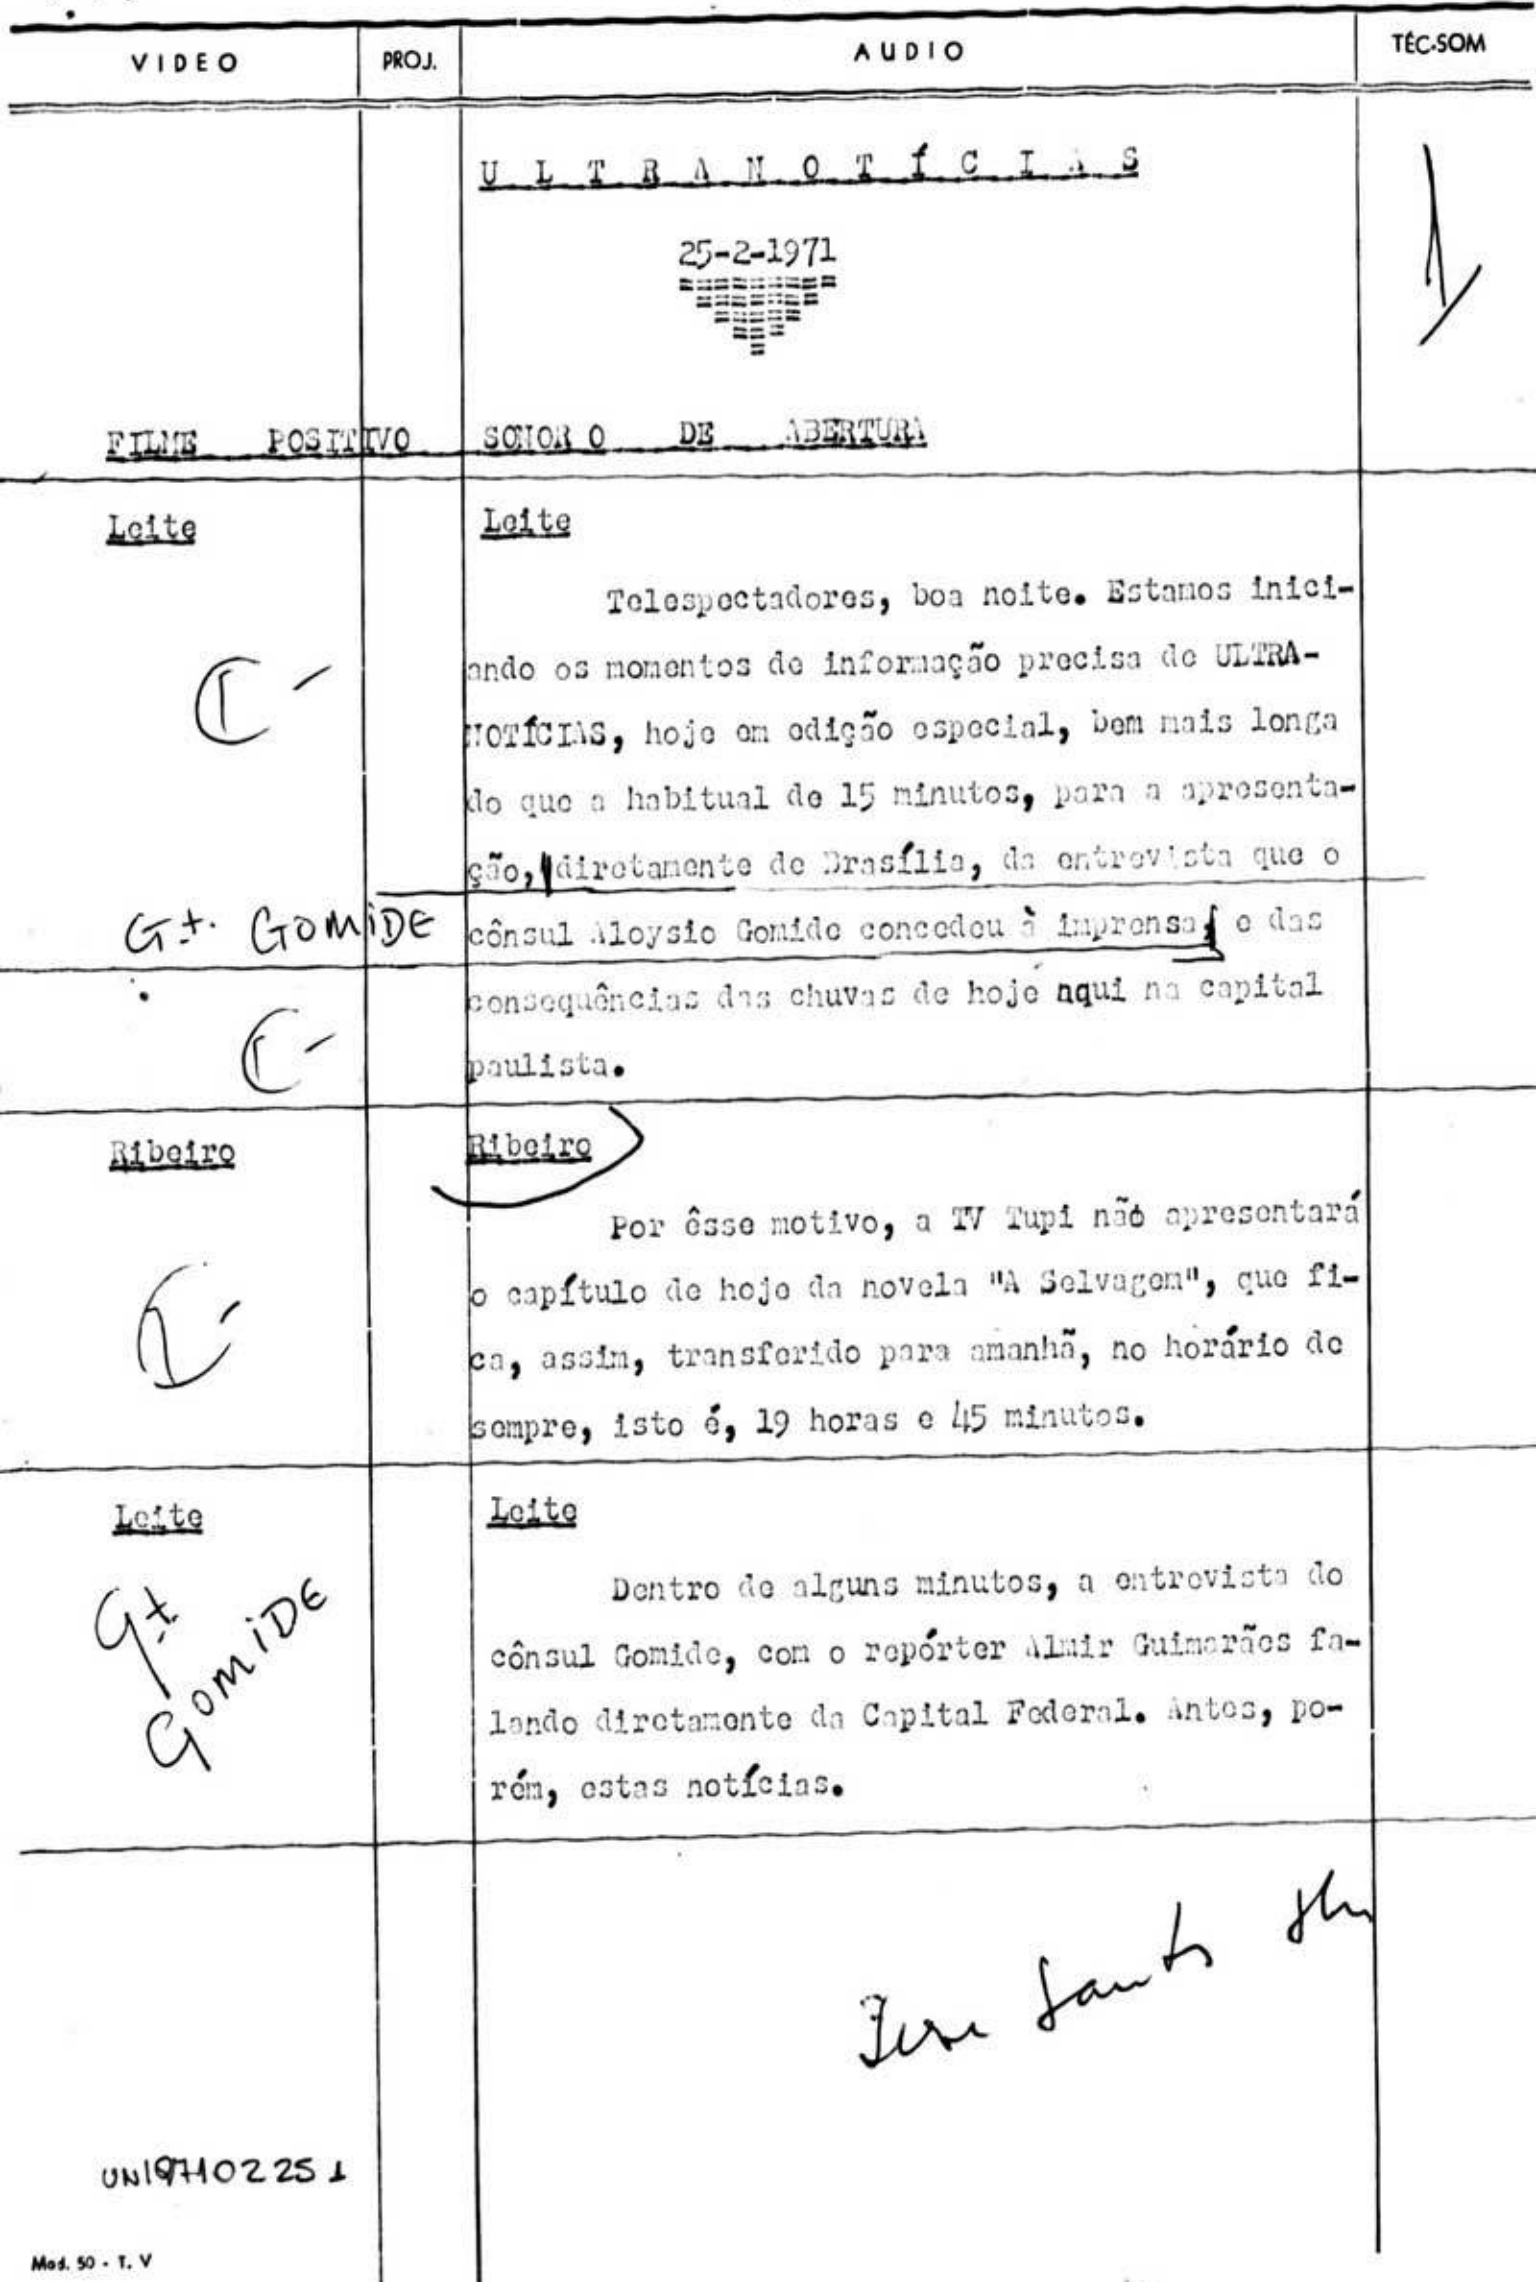 VIDEO PROJ. AUDIO TÉC-SOM
U L T R A N O T Í C I A S
1
25-2-1971
FILME POSITIVO SONORO DE ABERTURA
Leite Leite
Telespectadores, boa noite. Estamos inici-
ando os momentos de informação precisa de ULTRA-
NOTÍCIAS, hoje em edição especial, bem mais longa
do que a habitual de 15 minutos, para a apresenta-
ção, diretamente de Brasília, da entrevista que o
Gt. GOMIDE cônsul Aloysio Gomide concedeu à imprensa, e das
consequências das chuvas de hoje aqui na capital
paulista.
Ribeiro Ribeiro
Por êsse motivo, a TV Tupi não apresentará
o capítulo de hoje da novela "A Selvagem", que fi-
ca, assim, transferido para amanhã, no horário de
sempre, isto é, 19 horas e 45 minutos.
Leite Leite
Gt
GOMIDE
Dentro de alguns minutos, a entrevista do
cônsul Gomide, com o repórter Almir Guimarães fa-
lando diretamente da Capital Federal. Antes, po-
rém, estas notícias.
UN197102251
Mod. 50 - T. V